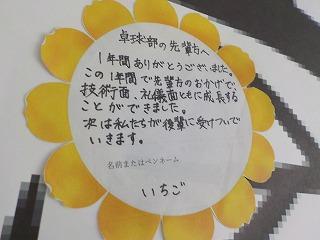 卓球部の先輩方へ
1年間ありがとうございました。
この1年間で先輩方のおかげで、
技術面、礼儀面ともに成長する
ことができました。
次は私たちが後輩に受けついで
いきます。
名前またはペンネーム
いちご